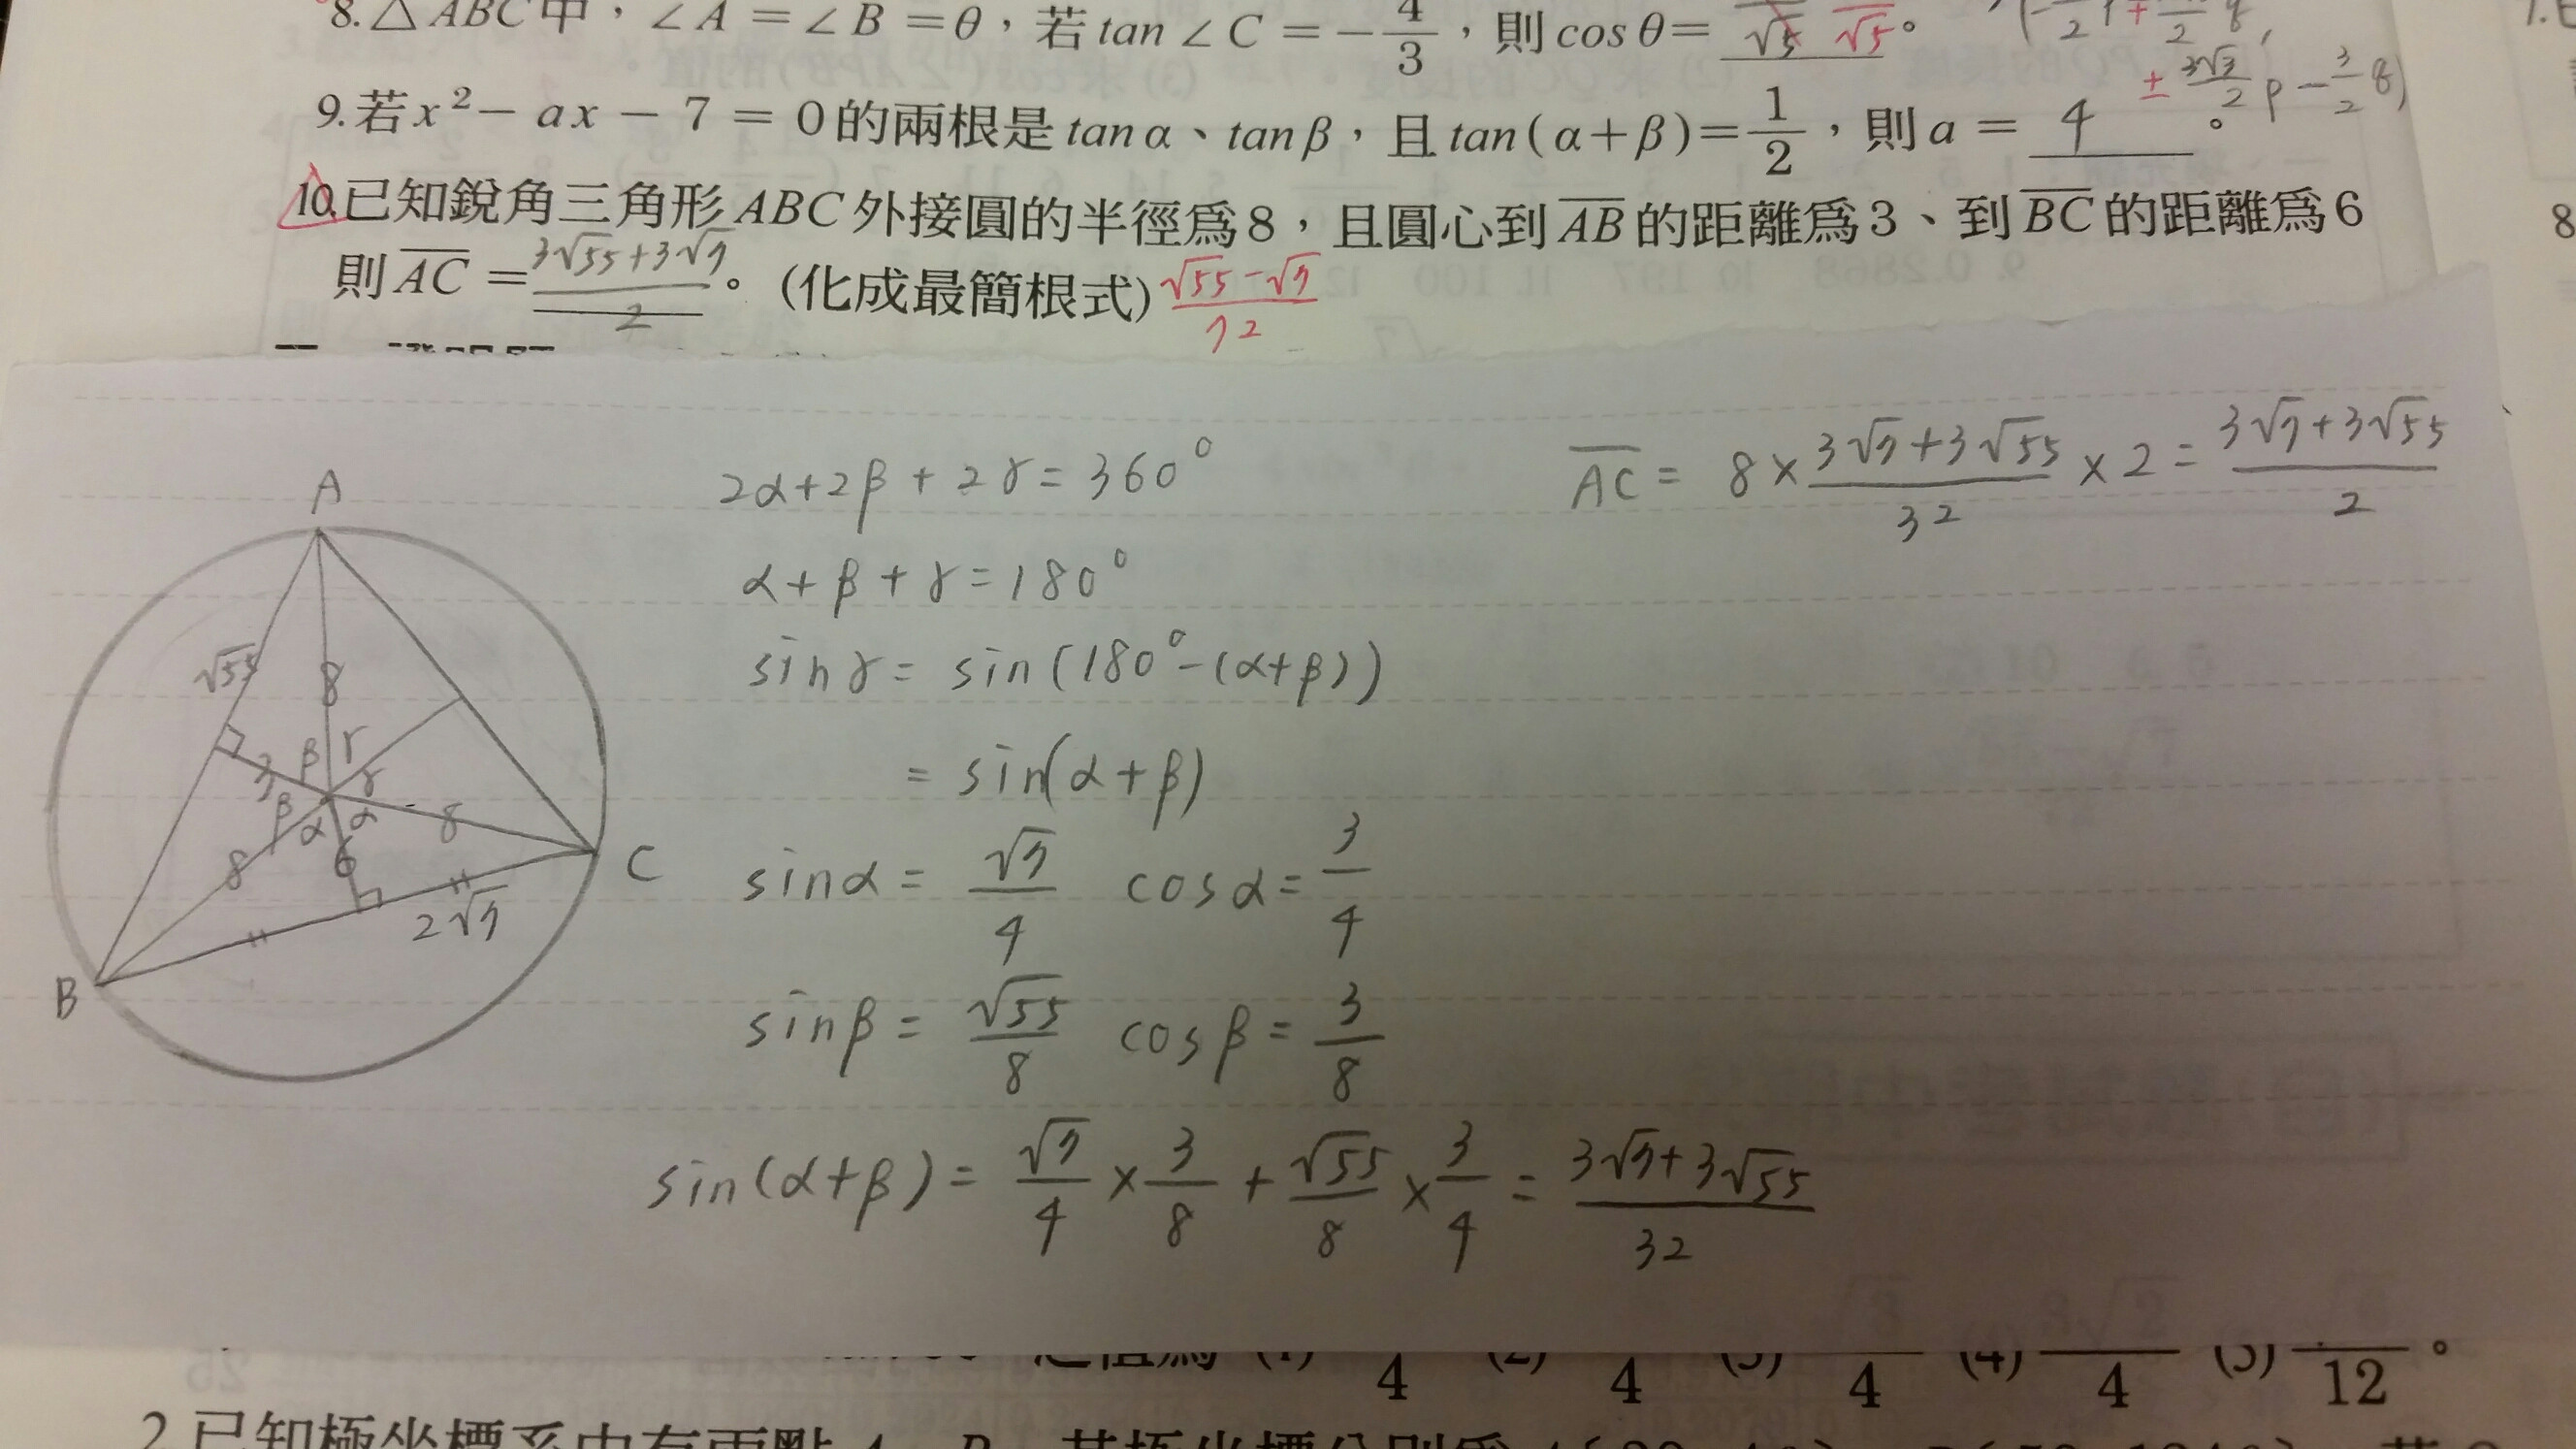 8. △ABC中，∠A＝∠B＝θ，若tan∠C＝−4/3，則cosθ＝ √5 √5。
9.若x²− ax − 7 = 0的兩根是tanα、tanβ，且tan(α+β)=1/2，則a = 4。
± 3√3/2 p − 3/2 8)
10.已知銳角三角形ABC外接圓的半徑為8，且圓心到AB的距離為3、到BC的距離為6
則AC = (3√55+3√7)/2。(化成最簡根式) (√55−√7)/72
A
√55
8
β r
3 γ
β α α
8 6 8
2√7
B
C
2α+2β+2γ=360°
α+β+γ=180°
sinγ= sin(180°−(α+β))
= sin(α+β)
sinα= √7/4 cosα= 3/4
sinβ= √55/8 cosβ= 3/8
sin(α+β)= √7/4 × 3/8 + √55/8 × 3/4 = (3√7+3√55)/32
AC= 8× (3√7+3√55)/32 ×2= (3√7+3√55)/2
(1) 4 (2) 4 (3) 4 (4) 4 (5) 12 。
2.已知極坐標系中有兩點A、B
8